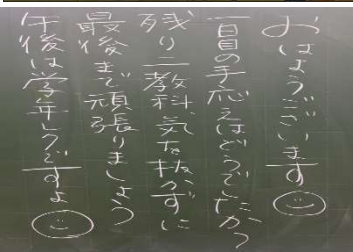 おはようございます
一日目の手応えはどうでしたか?
残り二教科、気を抜かずに
最後まで頑張りましょう
午後は学年レクですよ